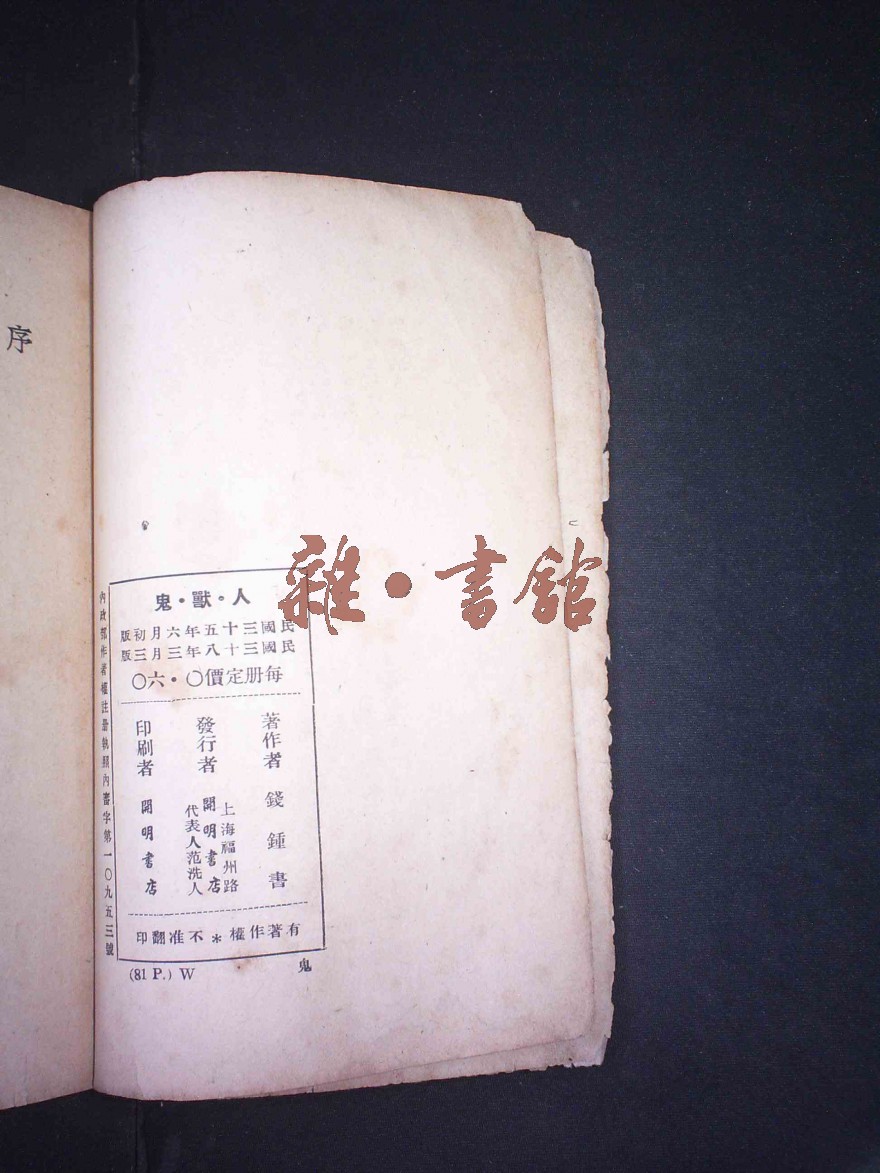 序
雜·書館
人·獸·鬼
民國三十五年六月初版
民國三十八年三月三版
每册定價〇·六〇
著作者 錢鍾書
發行者 開明書店
上海福州路
代表人范洗人
印刷者 開明書店
有著作權*不准翻印
內政部著作權注册執照內審字第一〇九五三號
(81 P.) W
鬼